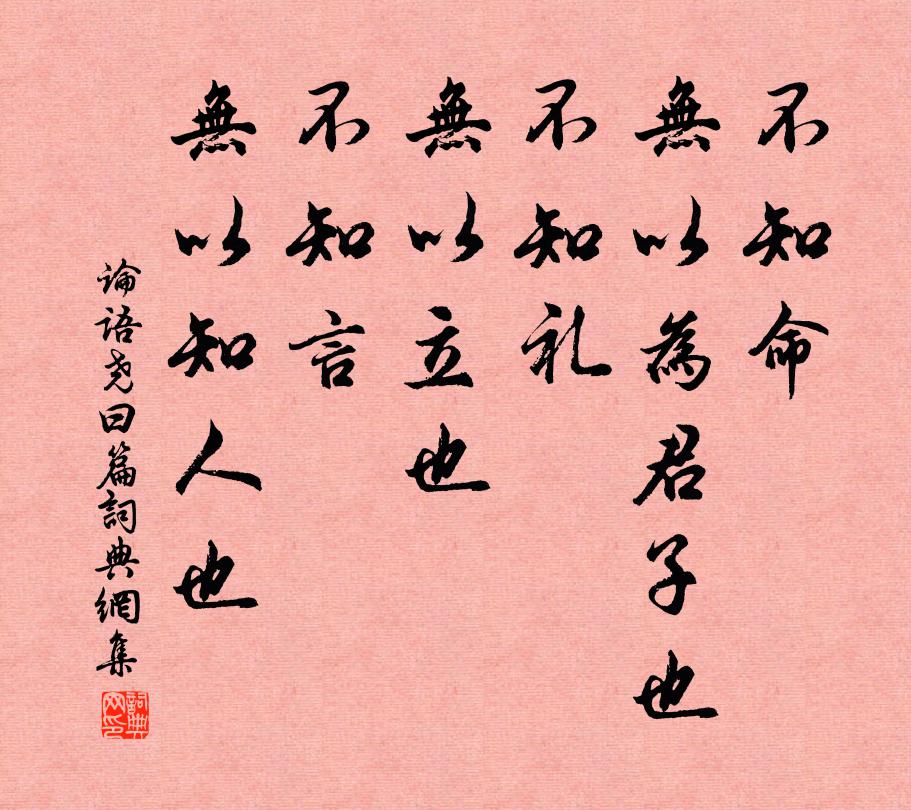 不知命
無以為君子也
不知礼
無以立也
不知言
無以知人也
論語尭曰篇詞典網集
詞典
网印